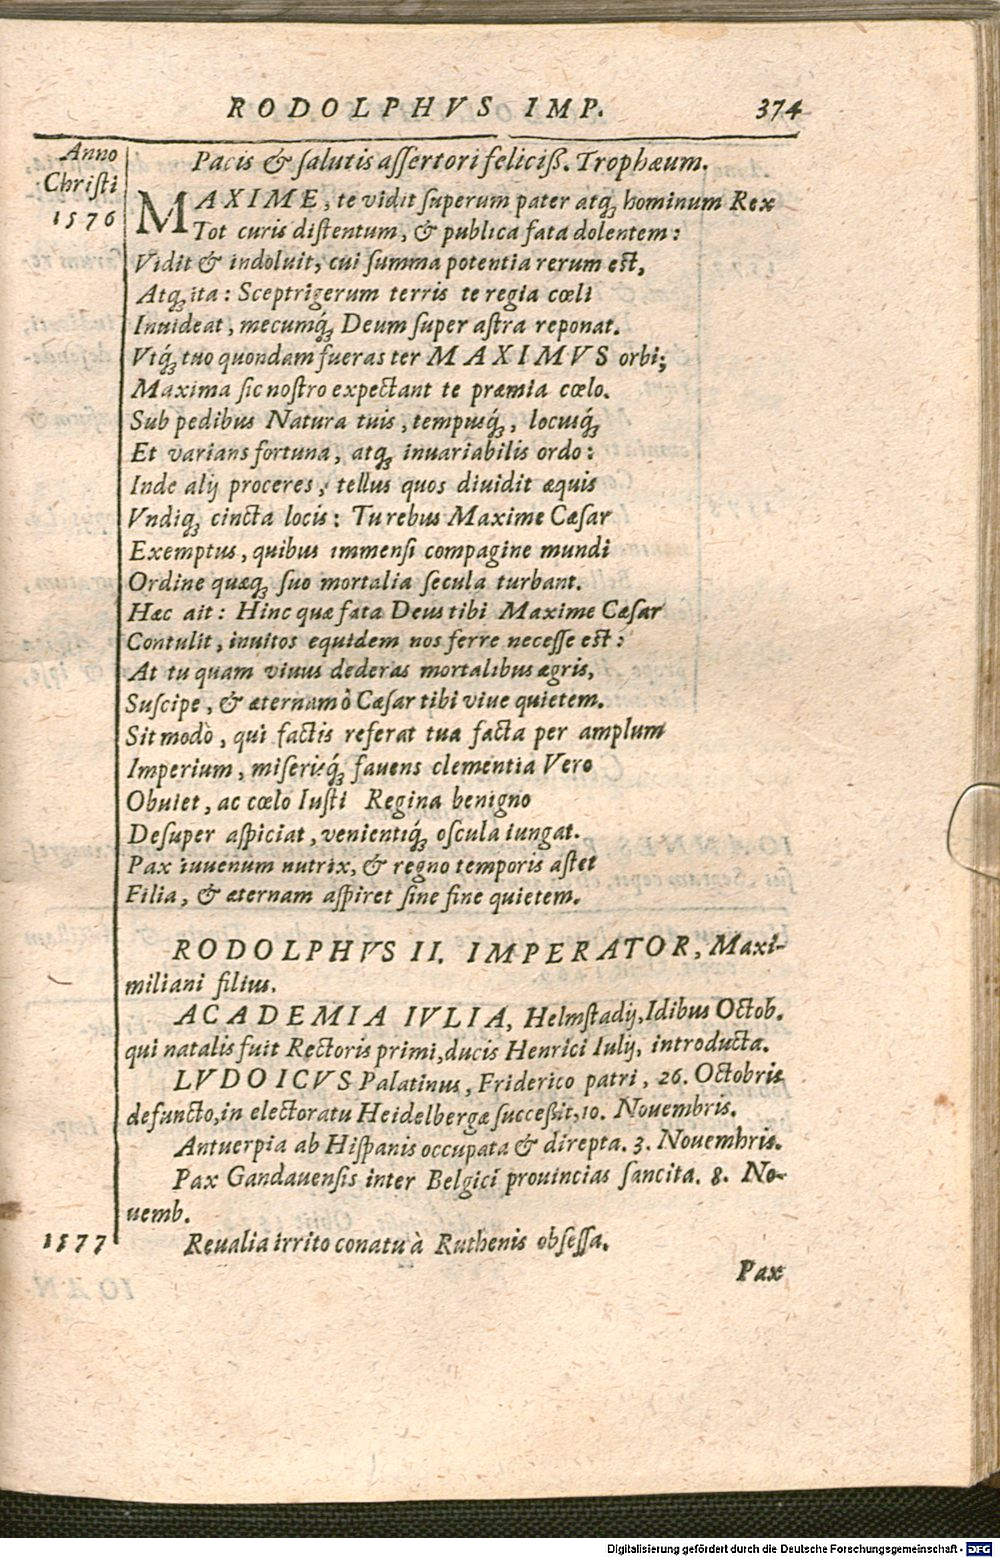 RODOLPHVS IMP. 374
Anno
Christi
1576
Pacis & ſalutis aſſertori feliciß. Trophæum.
MAXIME, te vidit ſuperum pater atq; hominum Rex
Tot curis diſtentum, & publica fata dolentem:
Vidit & indoluit, cui ſumma potentia rerum est,
Atq; ita: Sceptrigerum terris te regia cœli
Inuideat, mecumq́; Deum ſuper aſtra reponat.
Vtq́; tuo quondam fueras ter MAXIMVS orbi;
Maxima ſic noſtro expectant te præmia cœlo.
Sub pedibus Natura tuis, tempusq́;, locusq́;
Et varians fortuna, atq; inuariabilis ordo:
Inde alij proceres, tellus quos diuidit æquis
Vndiq; cincta locis: Tu rebus Maxime Cæſar
Exemptus, quibus immenſi compagine mundi
Ordine quæq; ſuo mortalia ſecula turbant.
Hæc ait: Hinc quæ fata Deus tibi Maxime Cæſar
Contulit, inuitos equidem nos ferre neceſſe est:
At tu quam viuus dederas mortalibus ægris,
Suſcipe, & æternam ô Cæſar tibi viue quietem.
Sit modò, qui factis referat tua facta per amplum
Imperium, miſerisq́; fauens clementia Vero
Obuiet, ac cœlo Iuſti Regina benigno
Deſuper aſpiciat, venientiq́; oſcula iungat.
Pax iuuenum nutrix, & regno temporis aſtet
Filia, & æternam aſpiret ſine fine quietem.
RODOLPHVS II. IMPERATOR, Maxi-
miliani filius.
ACADEMIA IVLIA, Helmſtadij, Idibus Octob.
qui natalis fuit Rectoris primi, ducis Henrici Iulij, introducta.
LVDOICVS Palatinus, Friderico patri, 26. Octobris
defuncto, in electoratu Heidelbergæ ſucceßit, 10. Nouembris.
Antuerpia ab Hiſpanis occupata & direpta. 3. Nouembris.
Pax Gandauenſis inter Belgici prouincias ſancita. 8. No-
uemb.
1577 Reualia irrito conatu à Ruthenis obſeſſa.
Pax
Digitalisierung gefördert durch die Deutsche Forschungsgemeinschaft - DFG